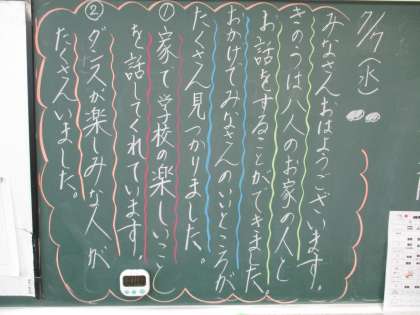 9/7(水)
みなさんおはようございます。
きのうは八人のお家の人と
お話をすることができました。
おかげでみなさんのいいところが
たくさん見つかりました。
①家で学校の楽しいこと
を話してくれています。
②ダンスが楽しみな人が
たくさんいました。